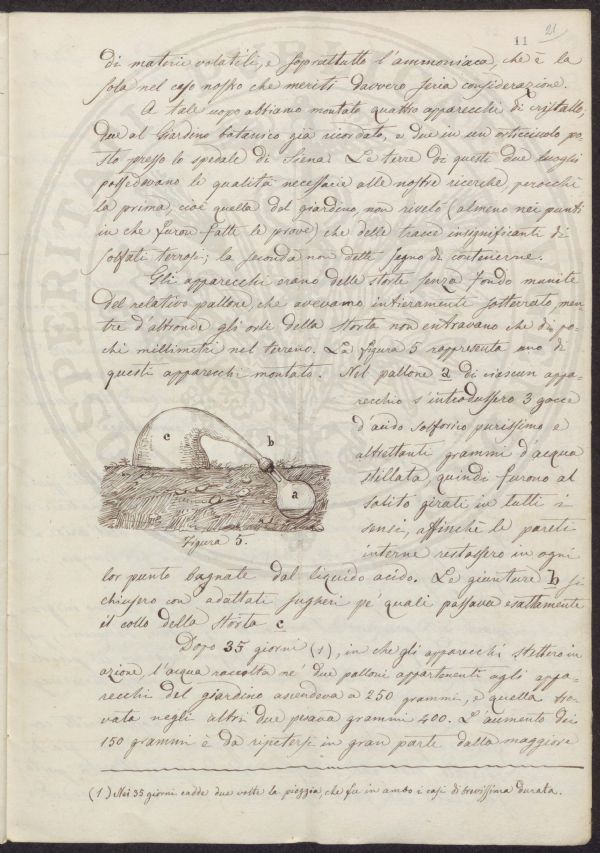 11
21
di materie volatili, e soprattutto l'ammoniaca, che è la
sola nel caso nostro che meriti davvero seria considerazione.
A tale uopo abbiamo montato quattro apparecchi di cristallo,
due al Giardino botanico già ricordato, e due in un orticciuolo po-
sto presso lo spedale di Siena. Le terre di questi due luoghi
possedevano le qualità necessarie alle nostre ricerche, perocchè
la prima, cioè quella del giardino, non rivelò (almeno nei punti
in che furon fatte le prove) che delle tracce insignificanti di
solfati terrosi; la seconda non dette segno di contenerne.
Gli apparecchi erano delle storte senza fondo munite
del relativo pallone che avevamo intieramente sotterrato men-
tre d'altronde gli orli della storta non entravano che di po-
chi millimetri nel terreno. La figura 5 rappresenta uno di
questi apparecchi montato. Nel pallone a di ciascun appa-
recchio s'introdussero 3 gocce
d'acido solforico purissimo e
altrettante grammi d'acqua
stillata, quindi furono al
solito girati in tutti i
sensi, affinchè le pareti
interne restassero in ogni
c
b
a
Figura 5.
lor punto bagnate dal liquido acido. Le giunture b si
chiusero con adattati sugheri pe' quali passava esattamente
il collo della storta c
Dopo 35 giorni (1), in che gli apparecchi stettero in
azione, l'acqua raccolta ne' due palloni appartenenti agli appa-
recchi del giardino ascendeva a 250 grammi, e quella tro-
vata negli altri due pesava grammi 400. L'aumento dei
150 grammi è da ripetersi in gran parte dalla maggiore
(1) Nei 35 giorni cadde due volte la pioggia, che fu in ambo i casi di brevissima durata.